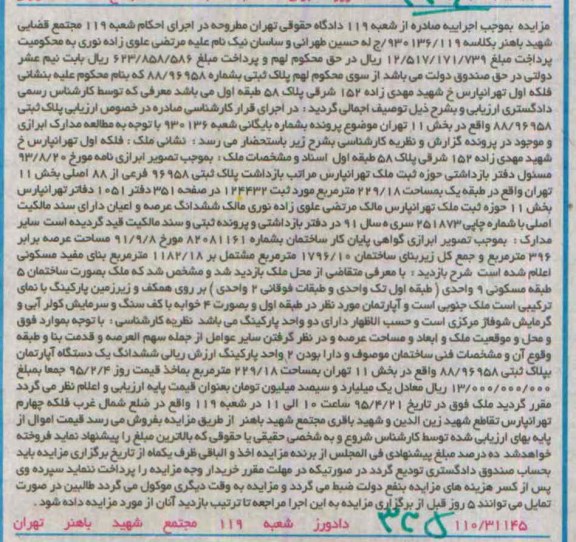 مزایده بموجب اجراییه صادره از شعبه ۱۱۹ دادگاه حقوقی تهران مطروحه در اجرای احکام شعبه ۱۱۹ مجتمع قضایی
شهید باهنر بکلاسه ۹۳۰۱۳۶/۱۱۹/ج له حسین طهرانی و ساسان نیک نام علیه مرتضی علوی زاده نوری به محکومیت
پرداخت مبلغ ۱۲/۵۱۷/۱۷۱/۷۳۹ ریال در حق محکوم لهم و پرداخت مبلغ ۶۲۳/۸۵۸/۵۸۶ ریال بابت نیم عشر
دولتی در حق صندوق دولت می باشد از سوی محکوم لهم پلاک ثبتی بشماره ۸۸/۹۶۹۵۸ که بنام محکوم علیه بنشانی
فلکه اول تهرانپارس خ شهید مهدی زاده ۱۵۲ شرقی پلاک ۵۸ طبقه اول می باشد معرفی که توسط کارشناس رسمی
دادگستری ارزیابی و بشرح ذیل توصیف اجمالی گردید : در اجرای قرار کارشناسی صادره در خصوص ارزیابی پلاک ثبتی
۸۸/۹۶۹۵۸ واقع در بخش ۱۱ تهران موضوع پرونده بشماره بایگانی شعبه ۹۳۰۱۳۶ با توجه به مطالعه مدارک ابرازی
و موجود در پرونده گزارش و نظریه کارشناسی بشرح زیر باستحضار می رسد : نشانی ملک : فلکه اول تهرانپارس خ
شهید مهدی زاده ۱۵۲ شرقی پلاک ۵۸ طبقه اول اسناد و مشخصات ملک : بموجب تصویر ابرازی نامه مورخ ۹۳/۸/۲۰
مسئول دفتر بازداشتی حوزه ثبت ملک تهرانپارس مراتب بازداشت پلاک ثبتی ۹۶۹۵۸ فرعی از ۸۸ اصلی بخش ۱۱
تهران واقع در طبقه یک بمساحت ۲۲۹/۱۸ مترمربع مورد ثبت ۱۲۴۴۳۲ در صفحه ۳۵۱ دفتر ۱۰۵۱ دفاتر تهرانپارس
بخش ۱۱ حوزه ثبت ملک تهرانپارس مالک مرتضی علوی زاده نوری مالک ششدانگ عرصه و اعیان دارای سند مالکیت
اصلی با شماره چاپی ۲۵۱۸۷۳ سری ه سال ۹۱ در دفتر بازداشتی و پرونده ثبتی و سند مالکیت قید گردیده است سایر
مدارک : بموجب تصویر ابرازی گواهی پایان کار ساختمان بشماره ۸۲۰۸۱۱۶۱ مورخ ۹۱/۹/۸ مساحت عرصه برابر
۳۹۶ مترمربع و جمع کل زیربنای ساختمان ۱۷۹۶/۱۰ مترمربع مشتمل بر ۱۱۸۲/۱۸ مترمربع بنای مفید مسکونی
اعلام شده است شرح بازدید : با معرفی متقاضی از محل ملک بازدید شد و مشخص شد که ملک بصورت ساختمان ۵
طبقه مسکونی ۹ واحدی ( طبقه اول تک واحدی و طبقات فوقانی ۲ واحدی ) بر روی همکف و زیرزمین پارکینگ با نمای
ترکیبی است ملک جنوبی است و آپارتمان مورد نظر در طبقه اول و بصورت ۴ خوابه با کف سنگ و سرمایش کولر آبی و
گرمایش شوفاژ مرکزی است و حسب الاظهار دارای دو واحد پارکینگ می باشد نظریه کارشناسی : با توجه بموارد فوق
و محل و موقعیت ملک و ابعاد و مساحت عرصه و در نظر گرفتن سایر عوامل از جمله سهم العرصه و قدمت بنا و طبقه
وقوع آن و مشخصات فنی ساختمان موصوف و دارا بودن ۲ واحد پارکینگ ارزش ریالی ششدانگ یک دستگاه آپارتمان
بپلاک ثبتی ۸۸/۹۶۹۵۸ واقع در بخش ۱۱ تهران بمساحت ۲۲۹/۱۸ مترمربع بماخذ قیمت روز ۹۵/۲/۴ جمعا بمبلغ
۱۳/۰۰۰/۰۰۰/۰۰۰ ریال معادل یک میلیارد و سیصد میلیون تومان بعنوان قیمت پایه ارزیابی و اعلام نظر می گردد
مقرر گردید ملک فوق در تاریخ ۹۵/۴/۲۱ ساعت ۱۰ الی ۱۱ در شعبه ۱۱۹ واقع در ضلع شمال غرب فلکه چهارم
تهرانپارس تقاطع شهید زین الدین و شهید باقری مجتمع شهید باهنر از طریق مزایده بفروش می رسد قیمت اموال از
پایه بهای ارزیابی شده توسط کارشناس شروع و به شخصی حقیقی یا حقوقی که بالاترین مبلغ را پیشنهاد نماید فروخته
خواهدشد ده درصد مبلغ پیشنهادی فی المجلس از برنده مزایده اخذ و الباقی ظرف یکماه از تاریخ برگزاری مزایده باید
بحساب صندوق دادگستری تودیع گردد در صورتیکه در مهلت مقرر خریدار وجه مزایده را پرداخت ننماید سپرده وی
پس از کسر هزینه های مزایده بنفع دولت ضبط می گردد و مزایده به وقت دیگری موکول می گردد طالبین در صورت
تمایل می توانند ۵ روز قبل از برگزاری مزایده به این اجرا مراجعه تا ترتیب بازدید آنان از مورد مزایده داده شود .
۱۱۰/۳۱۱۴۵ دادورز شعبه ۱۱۹ مجتمع شهید باهنر تهران